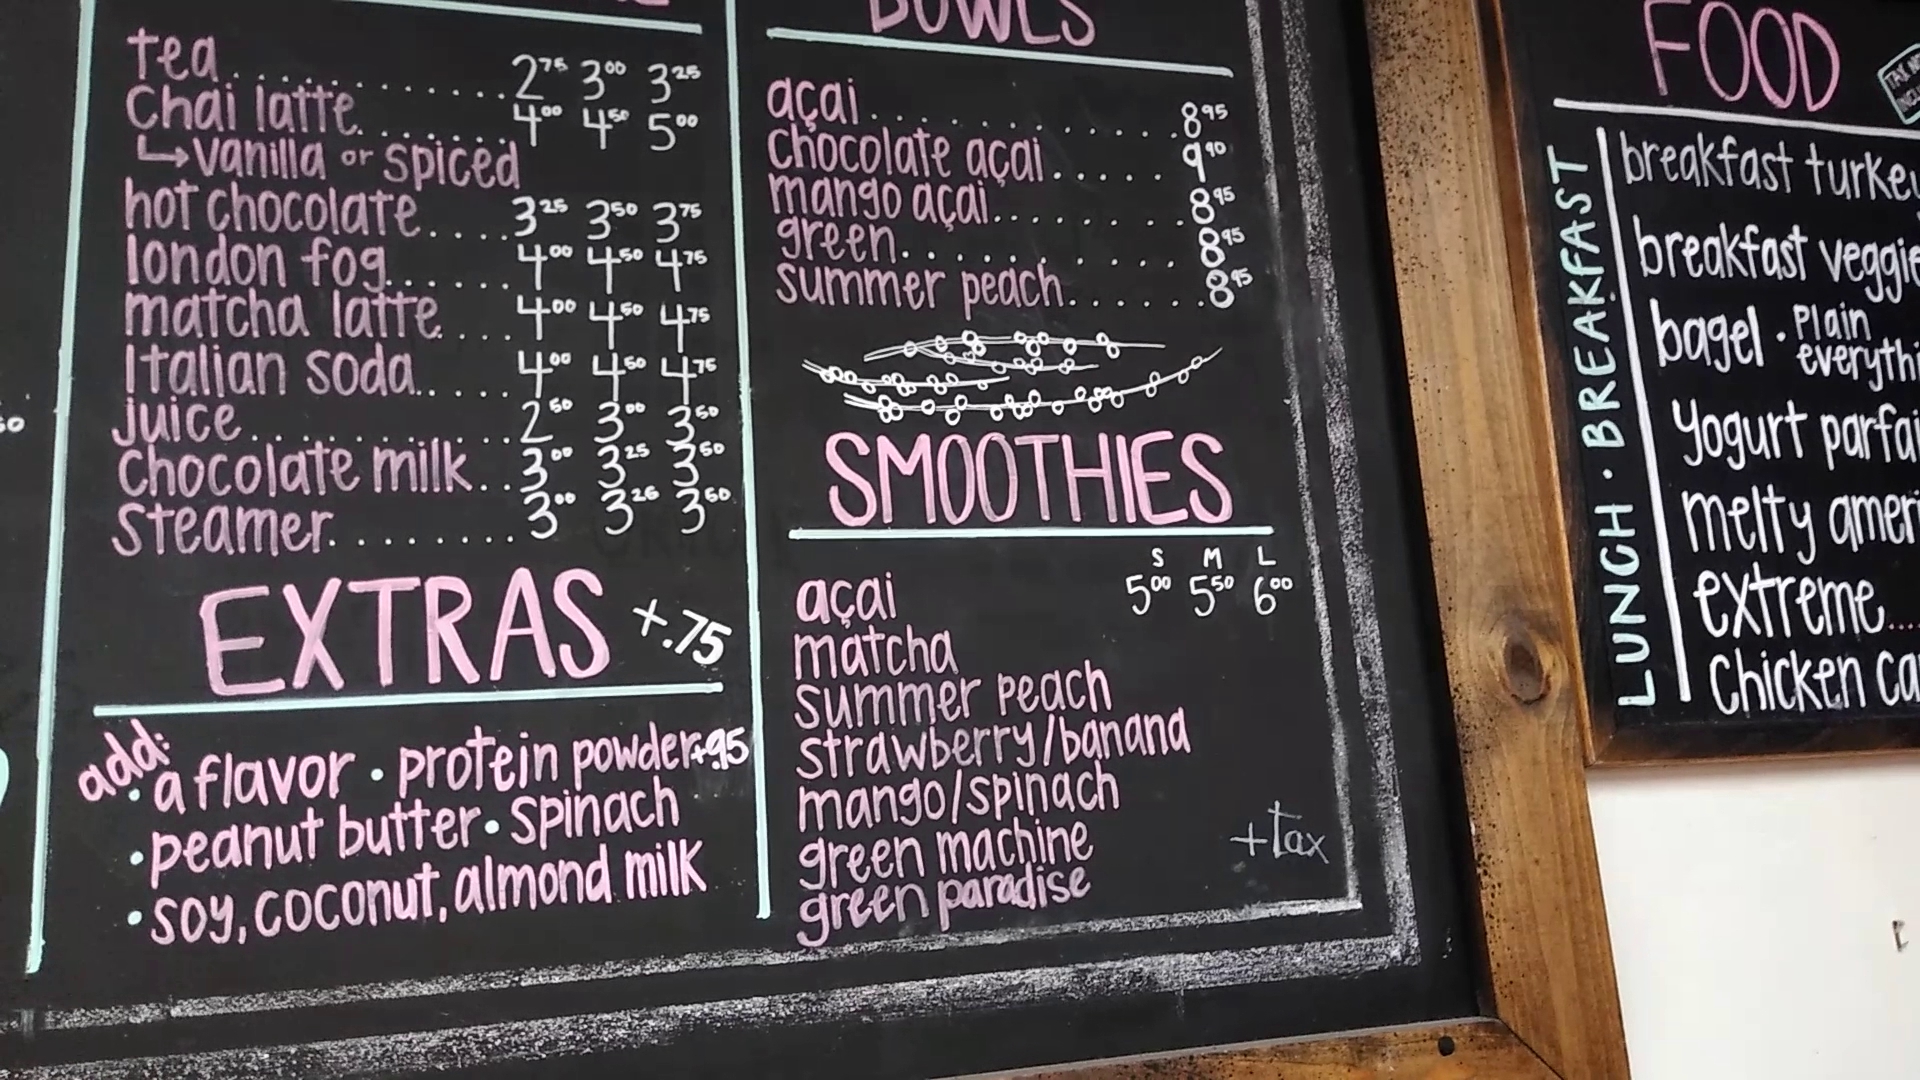 tea.......... 2 75 3 00 3 25
Chai latte....... 4 00 4 50 5 00
↳ vanilla or spiced
hot chocolate.... 3 25 3 50 3 75
london fog...... 4 00 4 50 4 75
matcha latte.... 4 00 4 50 4 75
Italian soda..... 4 00 4 50 4 75
juice.......... 2 50 3 00 3 50
Chocolate milk.. 3 00 3 25 3 50
Steamer........ 3 00 3 26 3 50
EXTRAS +.75
add:
• a flavor • protein powder +.95
• peanut butter • spinach
• soy, coconut, almond milk
BOWLS
açai............. 8 95
chocolate açai..... 9 90
mango açai......... 8 95
green.......... 8 95
summer peach...... 8 95
SMOOTHIES
S M L
açai 5 00 5 50 6 00
matcha
summer peach
strawberry/banana
mango/spinach
green machine
green paradise
+tax
FOOD
TAX
LUNCH • BREAKFAST
breakfast turkey
breakfast veggie
bagel • Plain
everythi
yogurt parfai
melty ameri
extreme....
Chicken ca